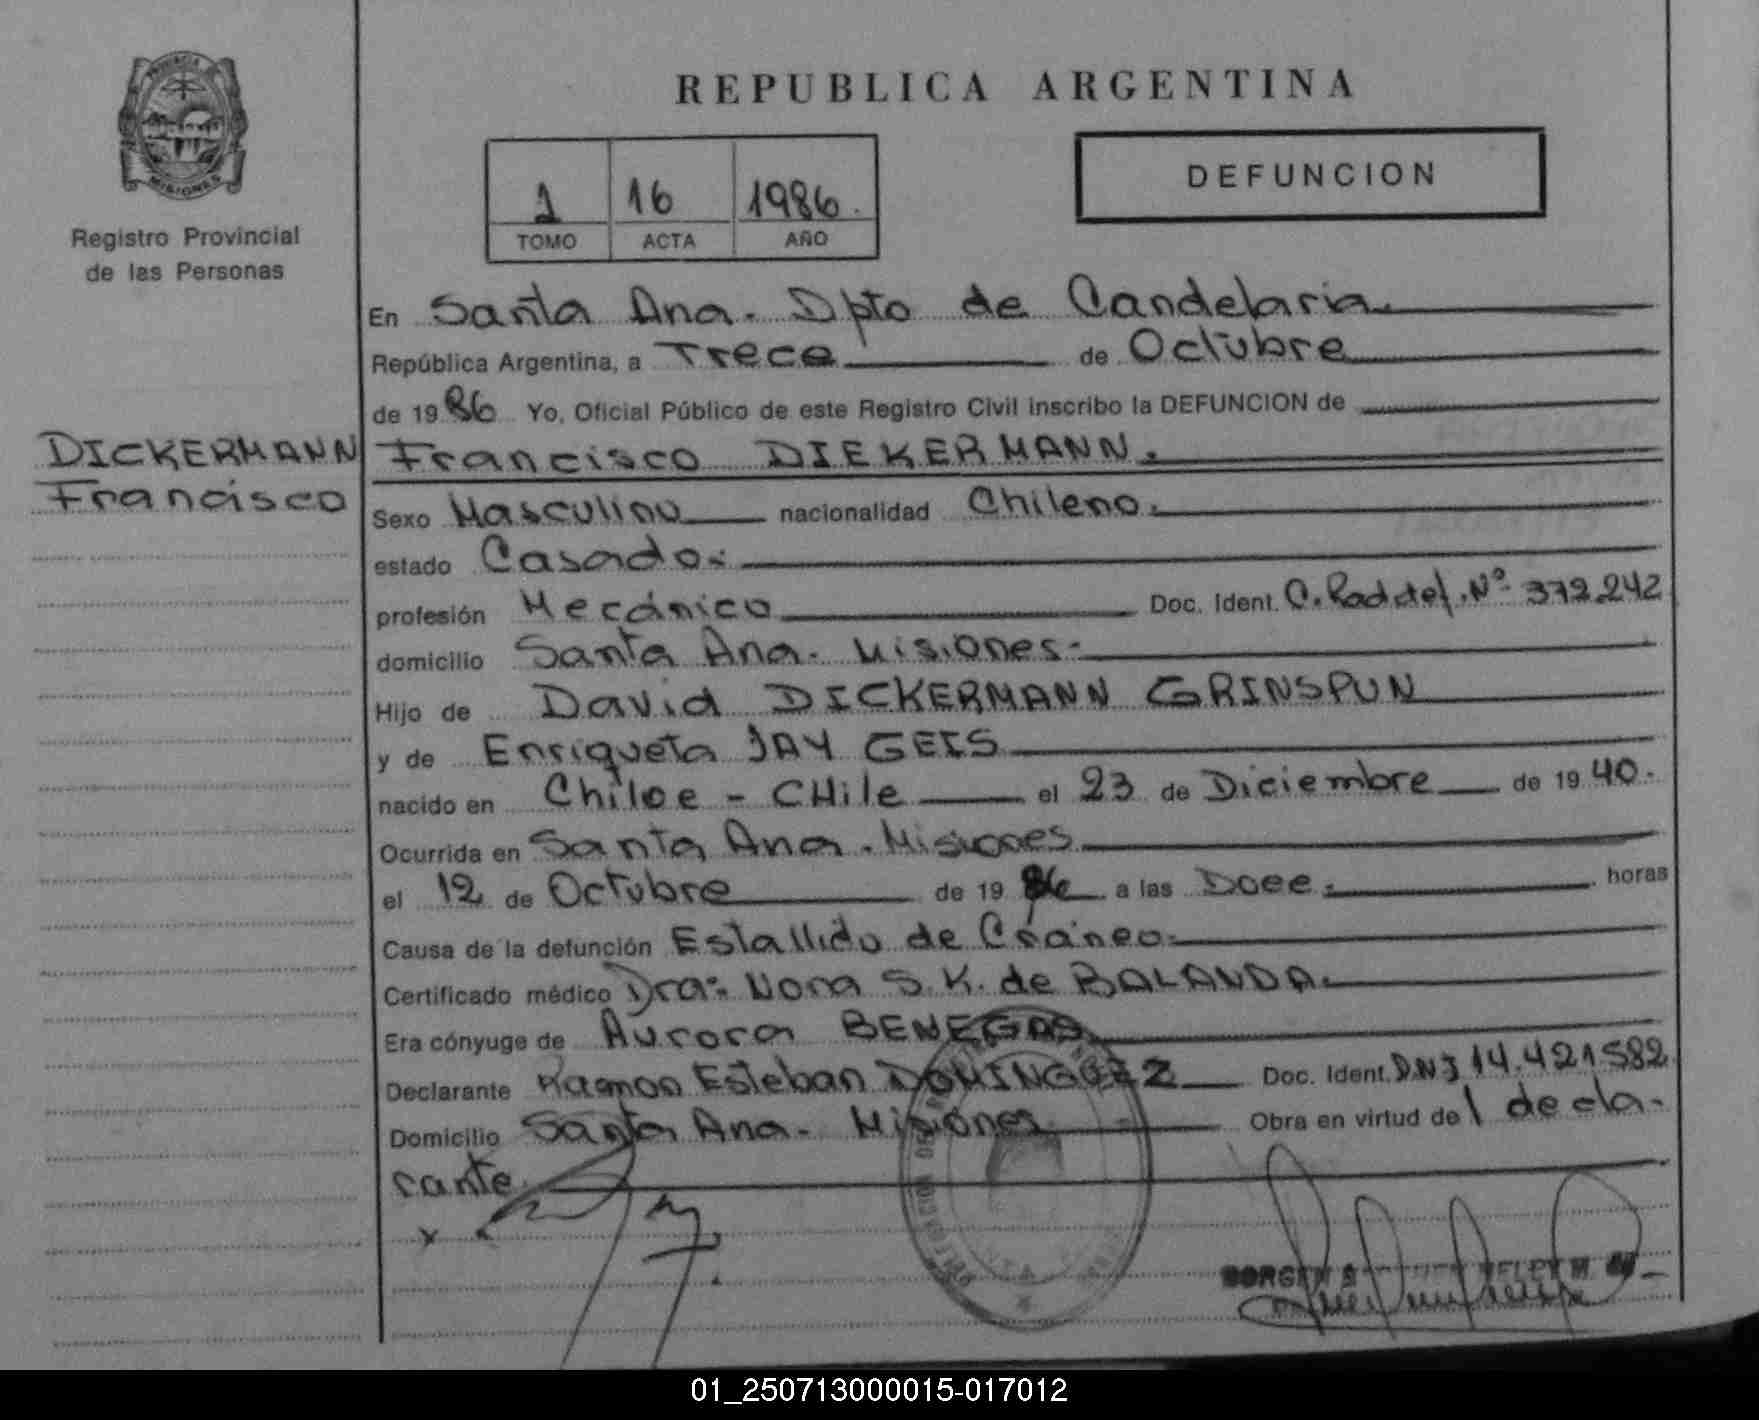 PROVINCIA DE
MISIONES
Registro Provincial
de las Personas
DICKERMANN
Francisco
REPUBLICA ARGENTINA
1 16 1986.
TOMO ACTA AÑO
DEFUNCION
En Santa Ana. Dpto de Candelaria.
República Argentina, a Trece de Octubre
de 1986 Yo, Oficial Público de este Registro Civil inscribo la DEFUNCION de
Francisco DIEKERMANN.
Sexo Masculino nacionalidad Chileno.
estado Casado.
profesión Mecánico Doc. Ident. C. Nº 372.242
domicilio Santa Ana. Misiones-
Hijo de David DICKERMANN GRINSPUN
y de Enriqueta JAY GEIS
nacido en Chiloe - CHile el 23 de Diciembre de 1940.
Ocurrida en Santa Ana. Misiones
el 12 de Octubre de 1986 a las Doce. horas
Causa de la defunción Estallido de Cráneo.
Certificado médico Dra: Nora S.K. de BALANDA.
Era cónyuge de Aurora BENEGAS
Declarante Ramon Esteban DOMINGUEZ Doc. Ident. DNI 14.421582
Domicilio Santa Ana. Misiones Obra en virtud de l decla-
rante.
x
01_250713000015-017012